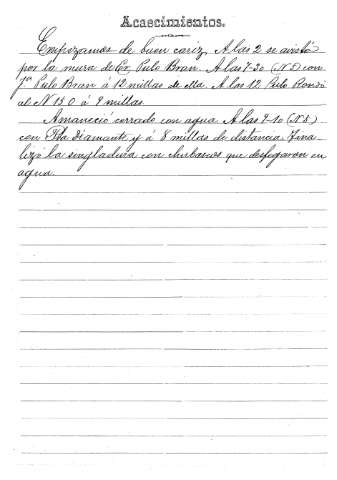 Acaecimientos.
Empezamos de buen cariz. A las 2 se avistó
por la mura de Er. Pulo Bran. A las 7-30 (N.S) con
Pulo Bran á 12 millas de ella. A las 12 Pulo Rondo
al N 13 O á 9 millas.
Amaneció cerrado con agua. A las 9-10 (N.S)
con Pta Diamante y á 8 millas de distancia. Fina
lizó la singladura con chubascos que desfogaron en
agua.